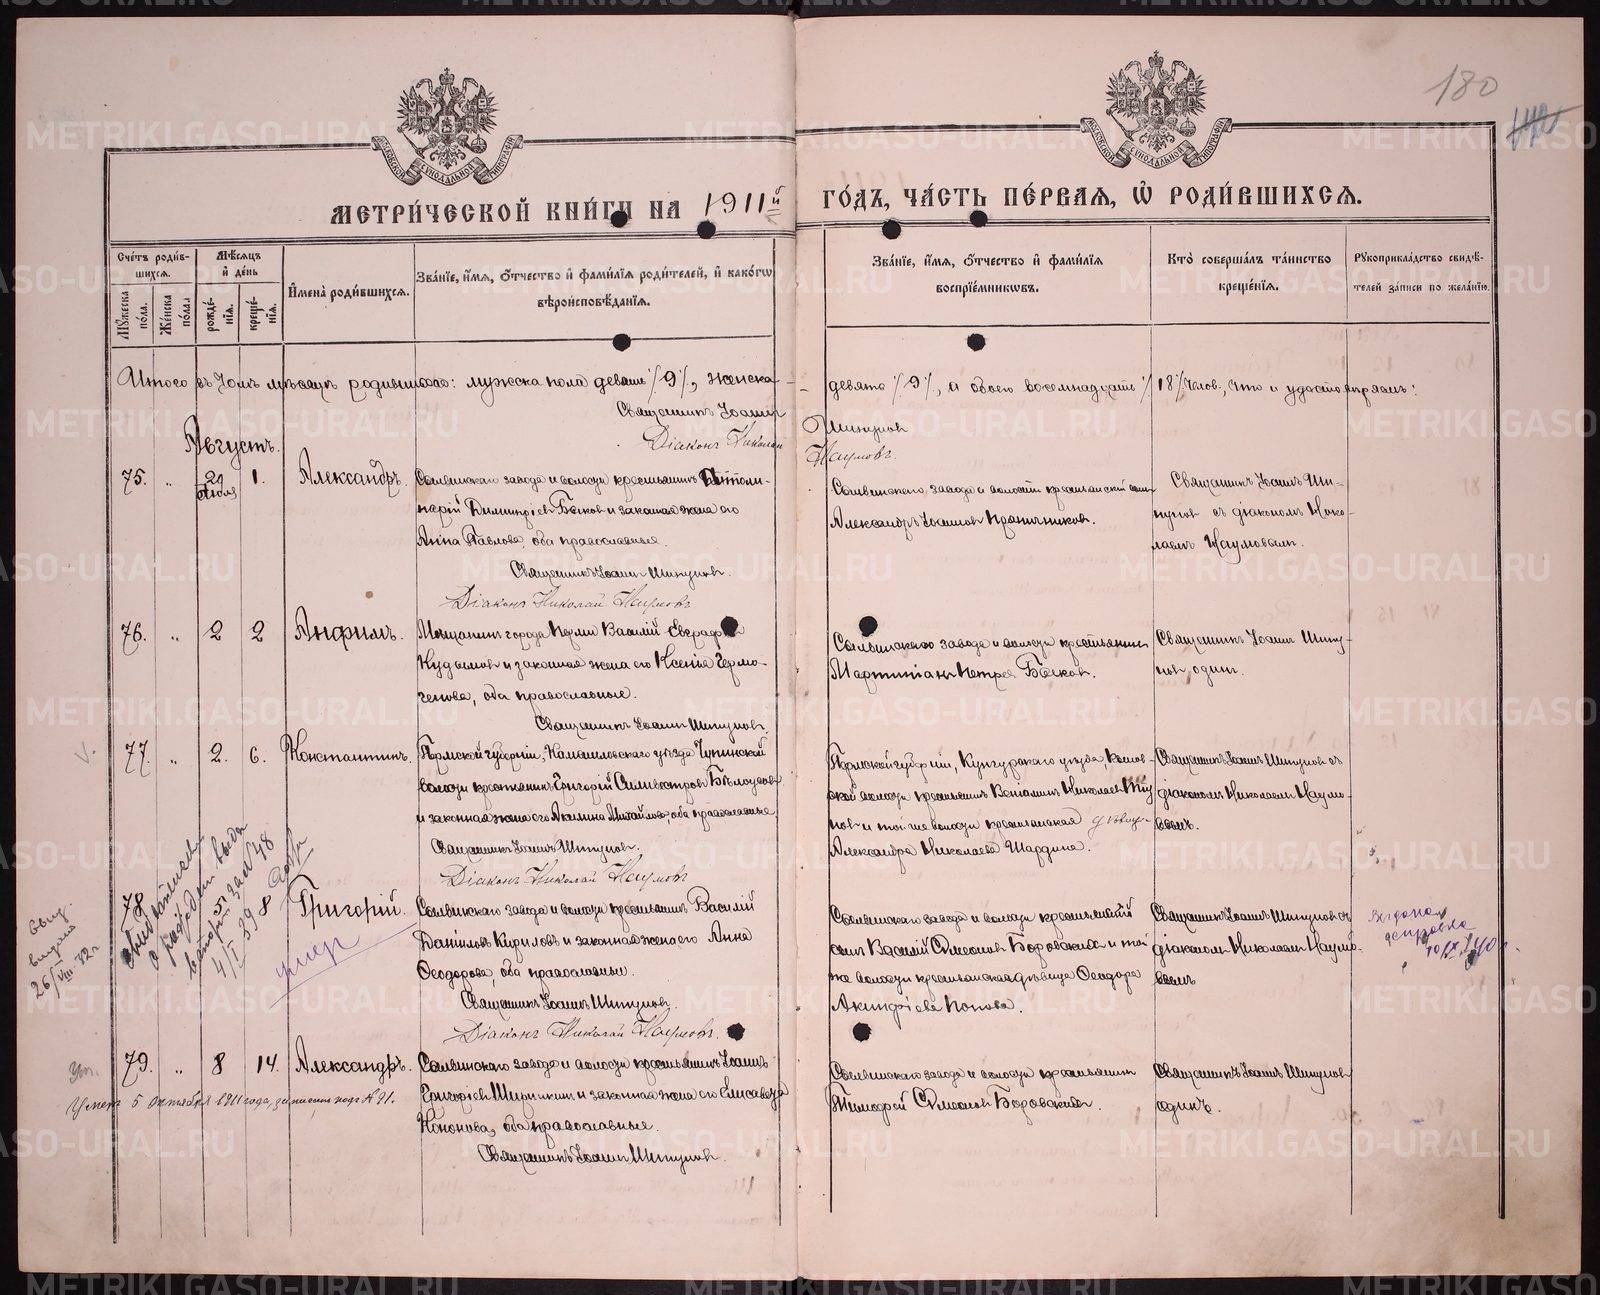 180
МОСКОВСКОЙ СѴНОДАЛЬНОЙ ТИПОГРАФІИ
МОСКОВСКОЙ СѴНОДАЛЬНОЙ ТИПОГРАФІИ
МЕТРИ́ЧЕСКОЙ КНИ́ГИ НА 1911й ГО́ДЪ, ЧА́СТЬ ПЕ́РВАЯ, Ѡ РОДИ́ВШИХСЯ.
Сче́тъ роди́вшихся.
Мꙋ́жеска по́ла.
Же́нска по́ла.
Мѣ́сяцъ и҆ де́нь
рожде́нїя.
креще́нїя.
И҆мена̀ роди́вшихся.
Зва́нїе, и҆́мя, ѻ҆́тчество и҆ фами́лїя роди́телей, и҆ како́гѡ вѣроисповѣ́данїя.
Зва́нїе, и҆́мя, ѻ҆́тчество и҆ фами́лїя воспрїе́мникѡвъ.
Кто̀ соверша́лъ та́инство креще́нїя.
Рꙋкоприкла́дство свидѣ́телей за́писи по жела́нїю.
Итого въ Іюлѣ мѣсяцѣ родившихся: мужска пола девять /9/, женска — девять /9/, а обоего восемнадцать /18/ челов., что и удостовѣряемъ:
Священникъ Іоаннъ Шипуновъ
Діаконъ Николай Наумовъ.
Августъ.
75. „ 29 Іюля 1. Александръ.
Сылвинскаго завода и волости крестьянинъ
Димитріевъ Быковъ и законная жена его
Анна Павлова, оба православные.
Священникъ Іоаннъ Шипуновъ.
Діаконъ Николай Наумовъ
Сылвинскаго завода и волости крестьянскій сынъ
Александръ Іоанновъ Пряничниковъ.
Священникъ Іоаннъ Ши-
пуновъ съ діакономъ Нико-
лаемъ Наумовымъ.
76. „ 2 2 Анфимъ.
Мѣщанинъ города Перми Василій Евграфовъ
Кудымовъ и законная жена его Ксенія Гермо-
генова, оба православные.
Священникъ Іоаннъ Шипуновъ.
Сылвинскаго завода и волости крестьянинъ
Мартиніанъ Петровъ Быковъ.
Священникъ Іоаннъ Шипу-
новъ, одинъ.
V. 77. „ 2. 6. Константинъ.
Пермской губерніи, Камышловскаго уѣзда Чупинской
волости крестьянинъ Григорій Сильвестровъ Бѣлоусовъ
и законная жена его Акилина Михайлова, оба православные.
Священникъ Іоаннъ Шипуновъ.
Діаконъ Николай Наумовъ
Пермской губерніи, Кунгурскаго уѣзда
ской волости крестьянинъ Веніаминъ Николаевъ
новъ и той же волости крестьянская дѣвица
Александра Николаева Шардина.
Священникъ Іоаннъ Шипуновъ съ
діакономъ Николаемъ Наумо-
вымъ.
Свид.
выдано
26/VIII-32 г.
78 8 Григорій.
умер
Сылвинскаго завода и волости крестьянинъ Василій
Даниловъ Кириловъ и законная жена его Анна
Ѳеодорова, оба православные.
Священникъ Іоаннъ Шипуновъ.
Діаконъ Николай Наумовъ.
Сылвинскаго завода и волости крестьянскій
сынъ Василій Симеоновъ Боровскихъ и той
же волости крестьянская дѣвица Ѳеодора
Акинфіева Попова.
Священникъ Іоаннъ Шипуновъ съ
діакономъ Николаемъ Наумо-
вымъ
Выдана
справка
Ум. 79. „ 8 14. Александръ.
Умеръ 5 октября 1911 года, записанъ подъ № 91.
Сылвинскаго завода и волости крестьянинъ Іоаннъ
Григорьевъ Ширинкинъ и законная жена его Елисавета
Кононова, оба православные.
Священникъ Іоаннъ Шипуновъ.
Сылвинскаго завода и волости крестьянинъ
Тимофей Симеоновъ Боровскихъ.
Священникъ Іоаннъ Шипуновъ
одинъ.
METRIKI.GASO-URAL.RU